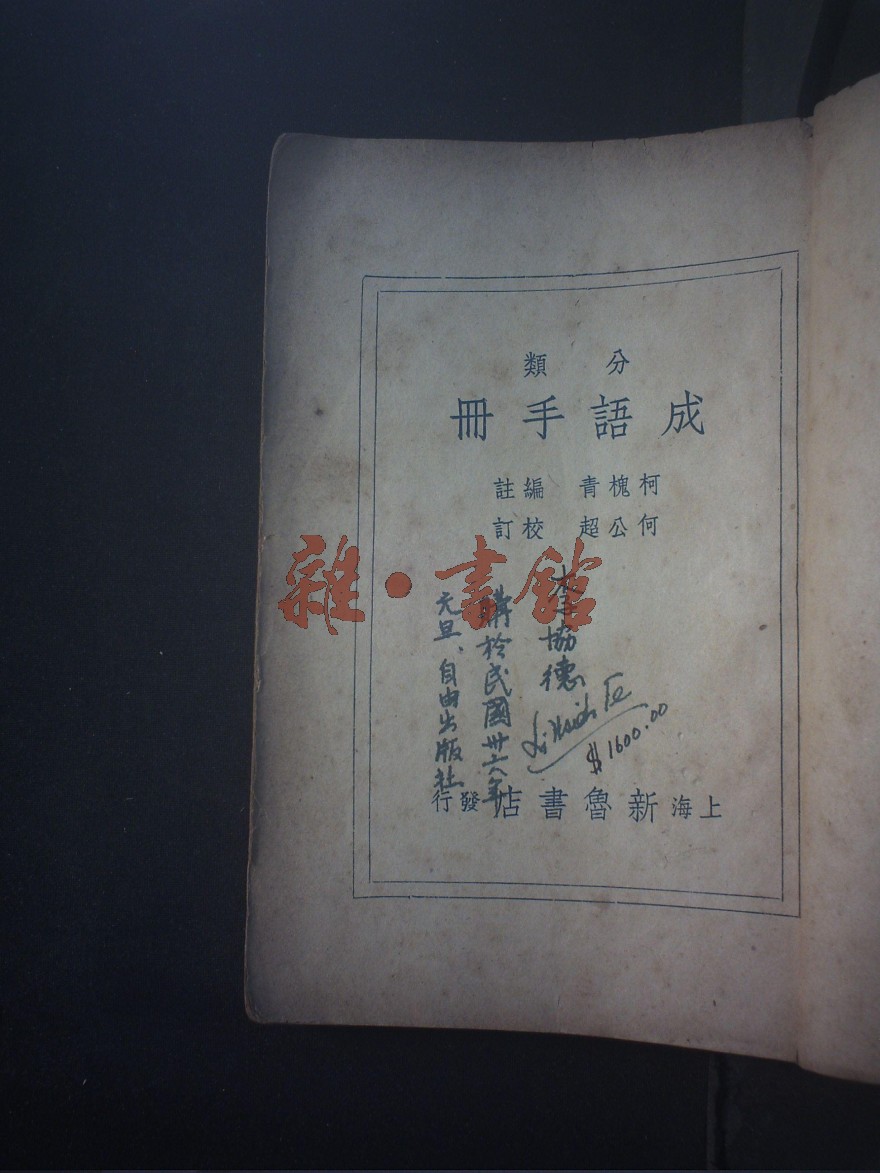 分類
成語手冊
柯槐青 編註
何公超 校訂
雜·書館
李協德
購於民國卅六年
元旦、自由出版社
Li Hsieh Te
$1600.00
上海新魯書店發行